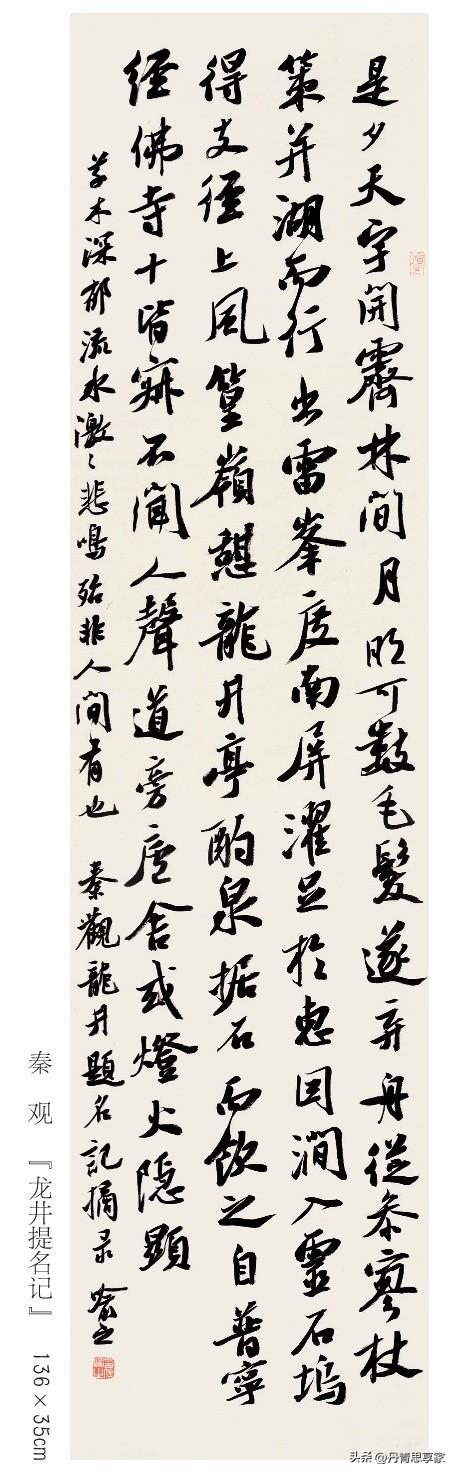 是夕天宇開霽林間月明可數毛髮遂弃舟從参寥杖
策并湖而行出雷峯度南屏濯足於惠因澗入靈石塢
得支徑上風篁嶺憩龍井亭酌泉据石而飲之自普寧
經佛寺十皆寂不聞人聲道旁廬舍或燈火隱顯
草木深郁流水激〻悲鳴殆非人間有也 秦觀龍井題名記摘录
秦 观 『龙井提名记』 136×35cm
头条 @丹青思享家